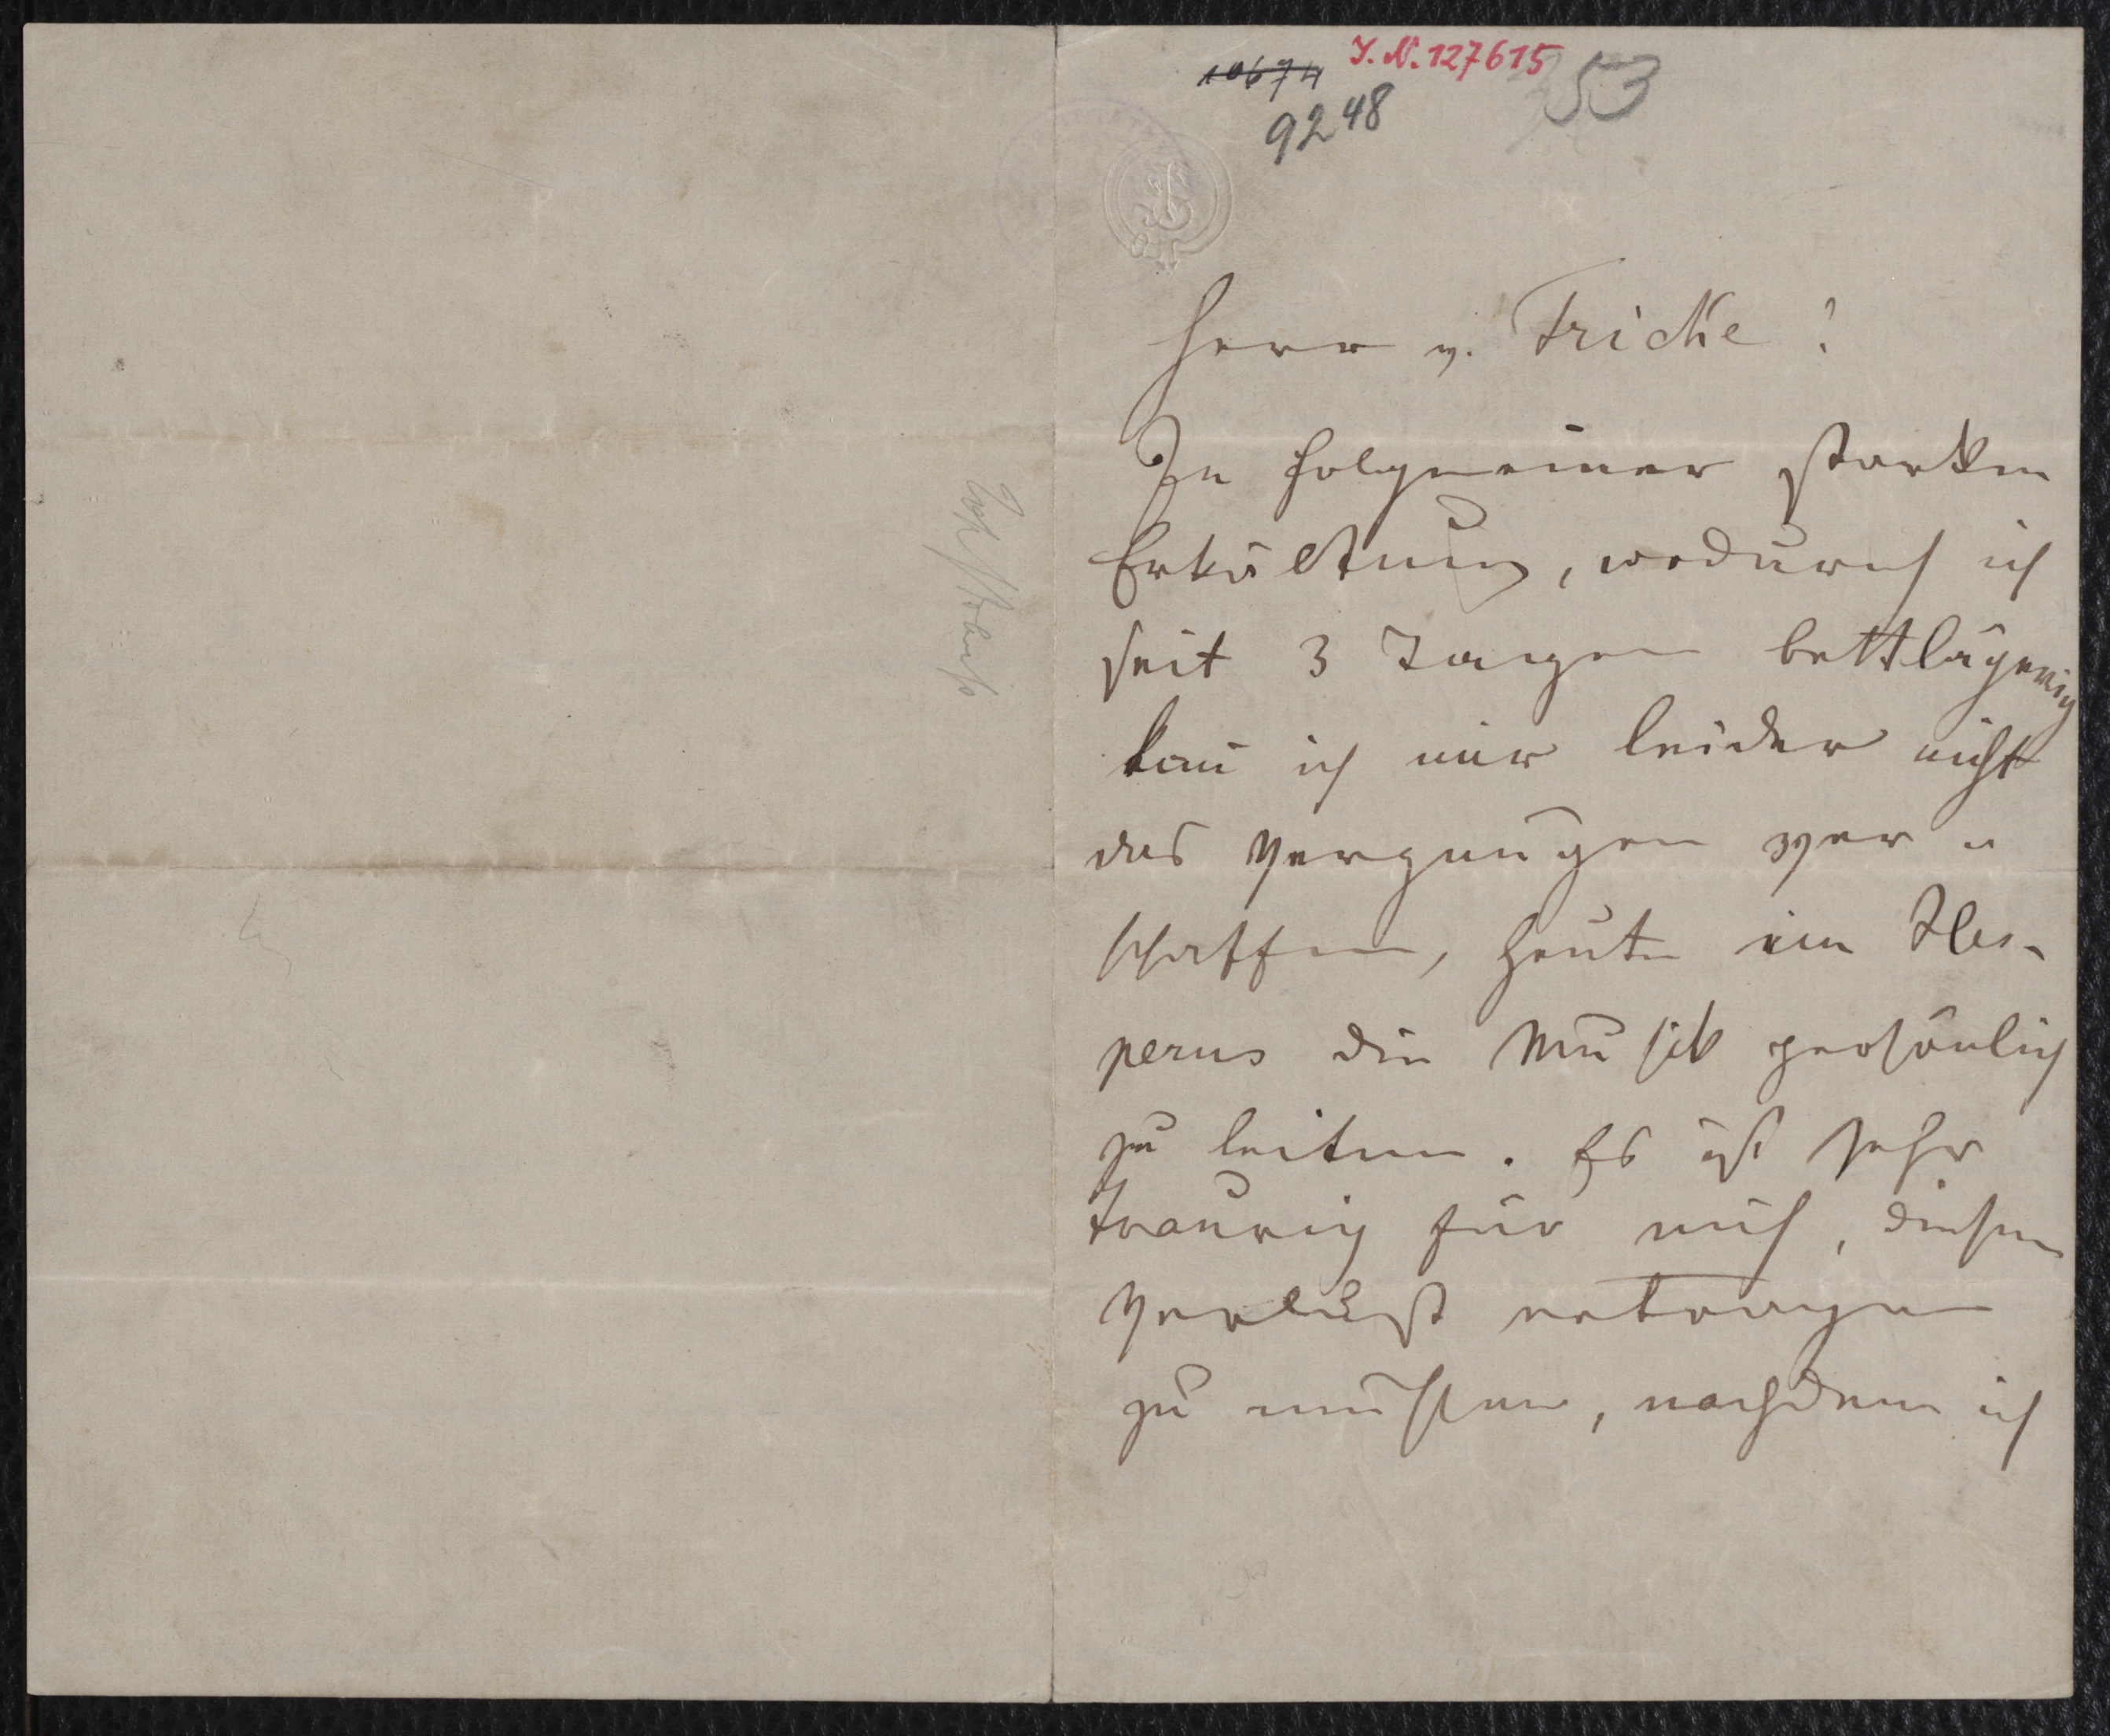 10674
I. N. 127615
53
9248
Herr v. Fricke!
In Folge einer starken
Erkältung, wodurch ich
seit 3 Tagen bettlägerig
kan̄ ich mir leider nicht
das Vergnügen ver-
schaffen, heute im Hes-
perus die Musik persönlich
zu leiten. Es ist sehr
traurig für mich, diesen
Verlust ertragen
zu müssen, nachdem ich
Joh Strauß